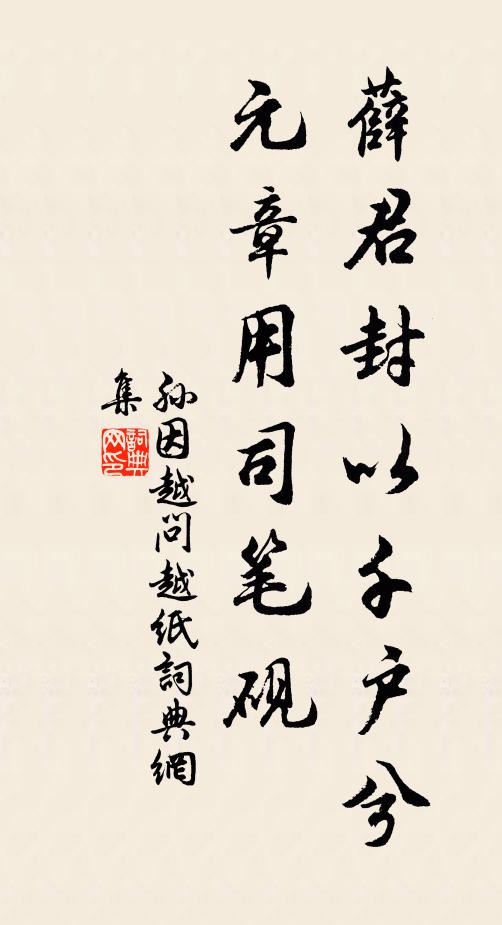 薛君封以千户兮
元章用司笔砚
孙因越问越紙詞典網
集
詞典网印